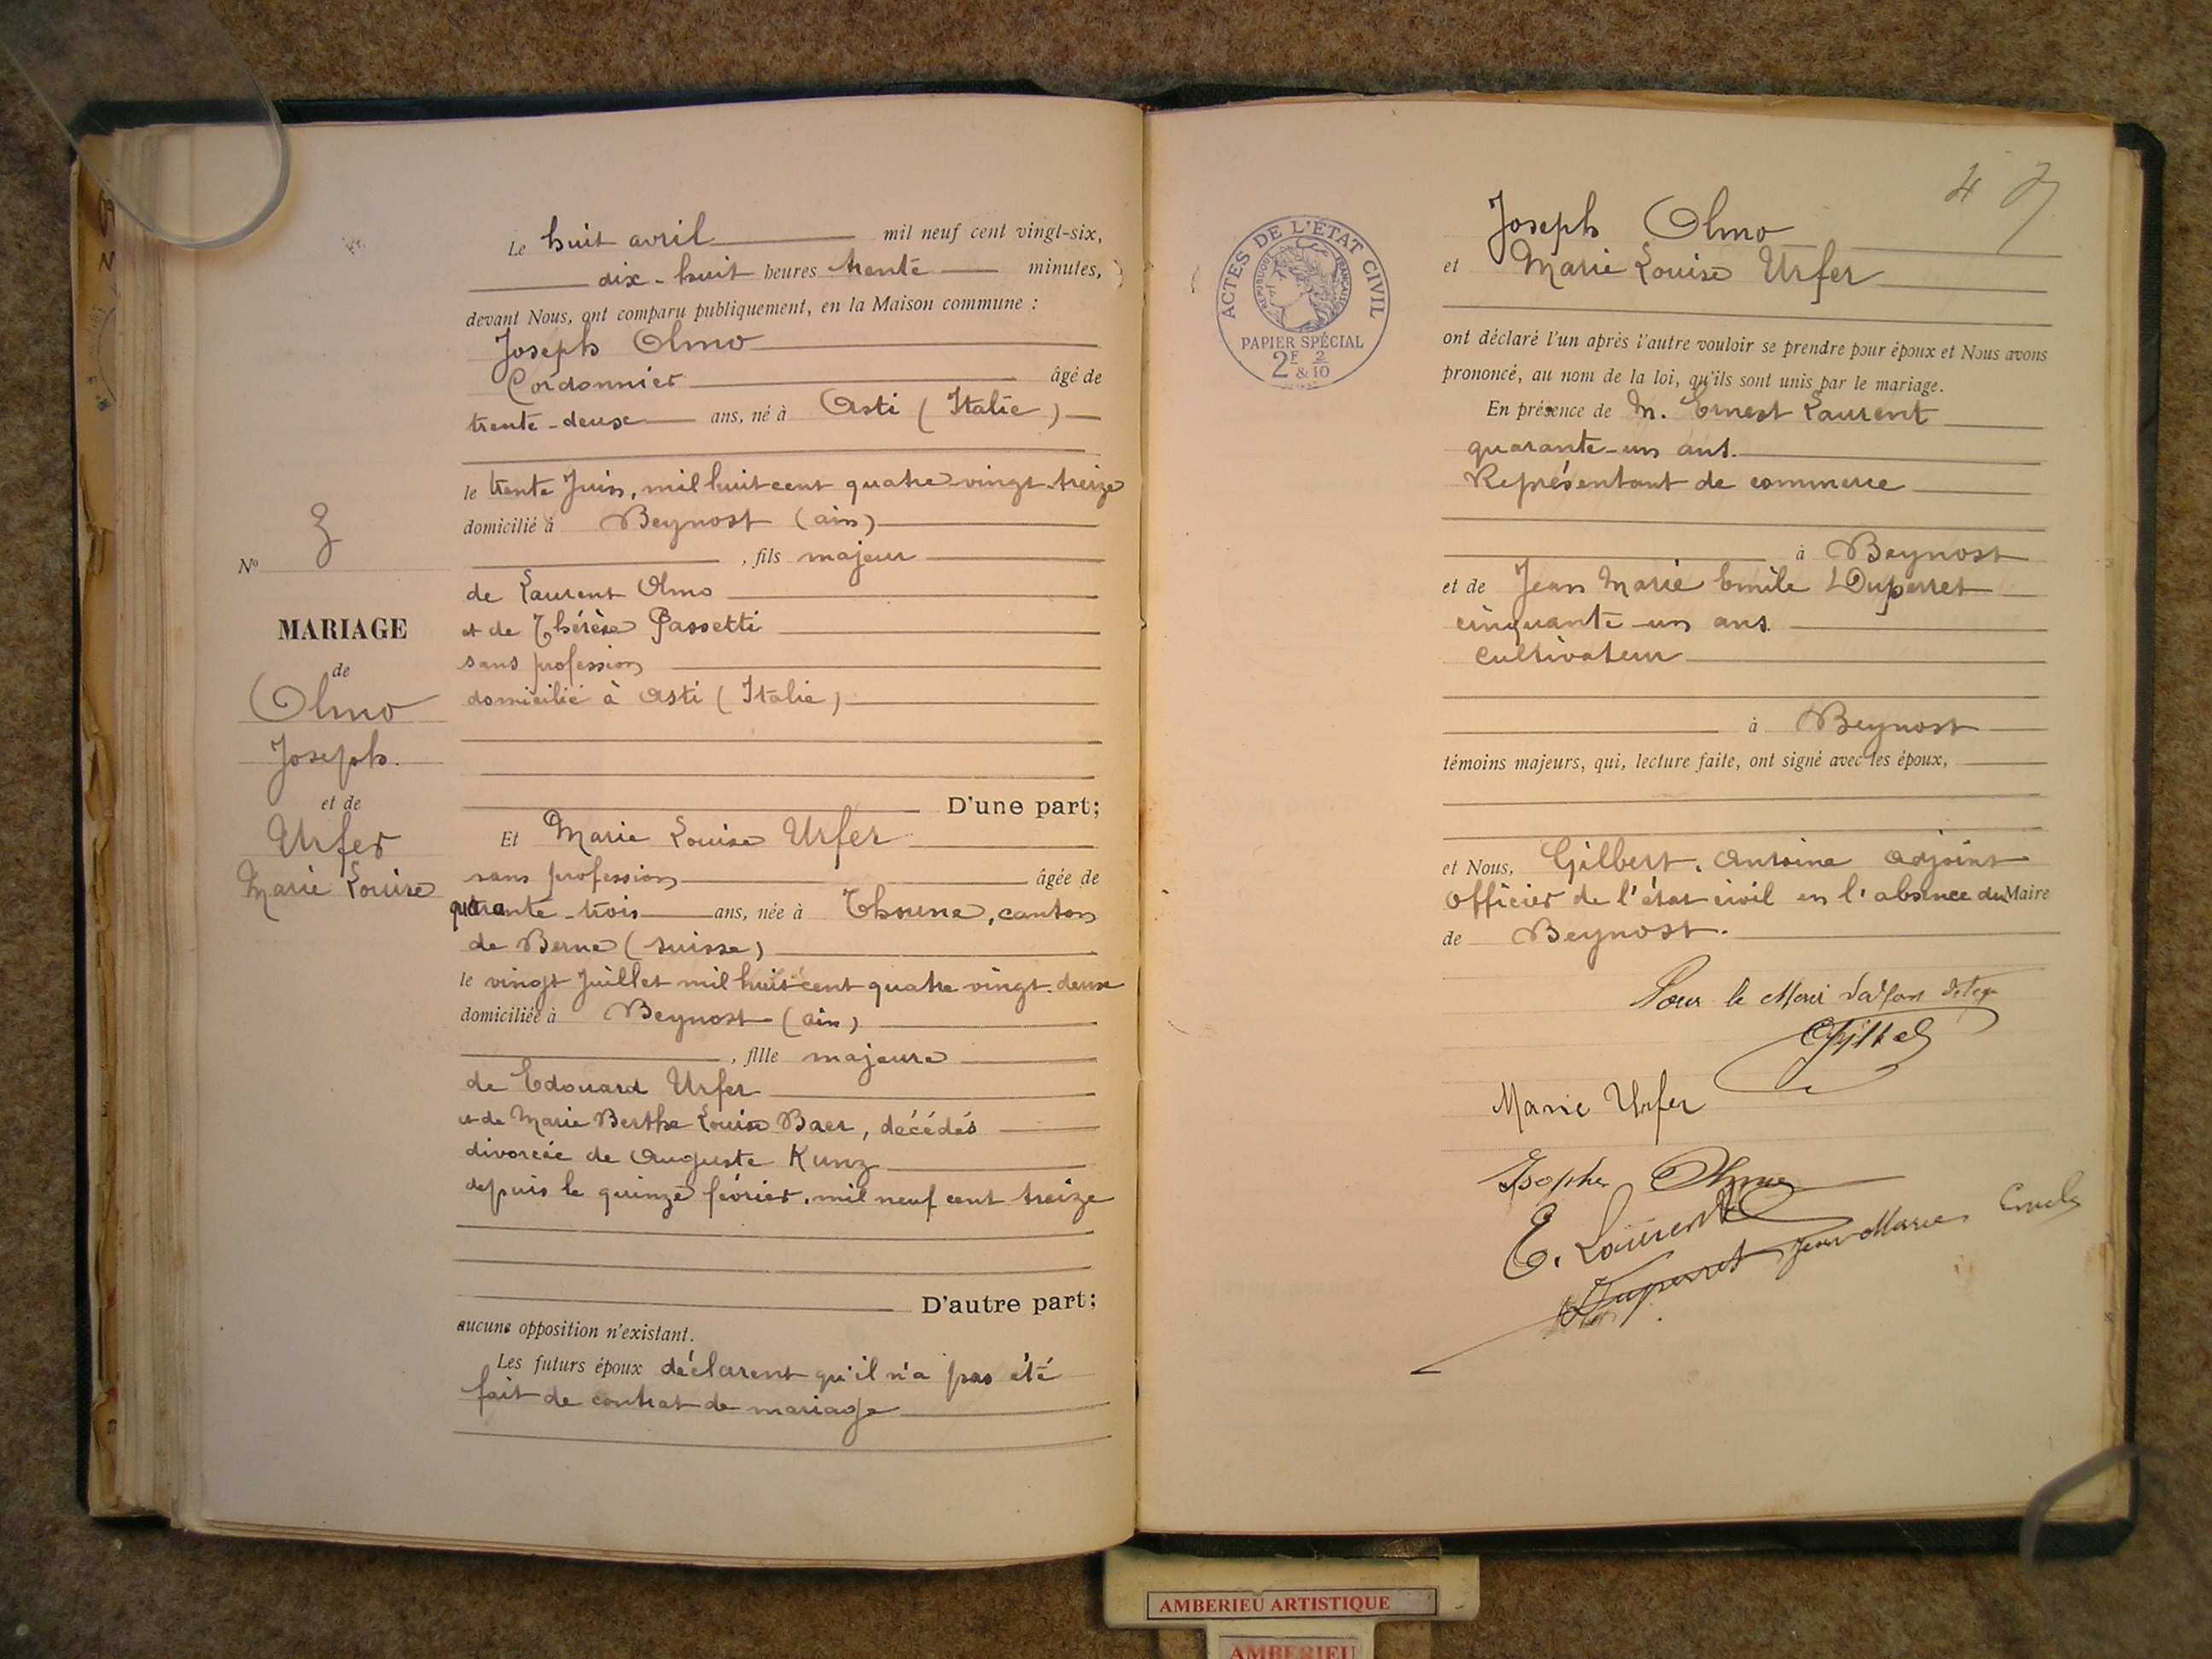 N° 3
MARIAGE
de
Olmo
Joseph.
et de
Urfer
Marie Louise
Le huit avril mil neuf cent vingt-six,
dix-huit heures trente minutes,
devant Nous, ont comparu publiquement, en la Maison commune :
Joseph Olmo
Cordonnier âgé de
trente-deux ans, né à Asti (Italie)
le trente Juin, mil huit cent quatre vingt-treize
domicilié à Beynost (ain)
, fils majeur
de Laurent Olmo
et de Thérèse Passetti
sans profession
domicilié à Asti (Italie)
D'une part;
Et Marie Louise Urfer
sans profession âgée de
quarante-trois ans, née à Thoune, canton
de Berne (suisse)
le vingt Juillet mil huit cent quatre vingt-deux
domiciliée à Beynost (ain)
, fille majeure
de Edouard Urfer
et de Marie Berthe Louise Baer, décédés
divorcée de Auguste Kunz
depuis le quinze février, mil neuf cent treize
D'autre part;
aucune opposition n'existant.
Les futurs époux déclarent qu'il n'a pas été
fait de contrat de mariage
ACTES DE L'ÉTAT CIVIL
RÉPUBLIQUE FRANÇAISE
PAPIER SPÉCIAL
2F & 2/10
Joseph Olmo
et Marie Louise Urfer
ont déclaré l'un après l'autre vouloir se prendre pour époux et Nous avons
prononcé, au nom de la loi, qu'ils sont unis par le mariage.
En présence de M. Ernest Laurent
quarante-un ans.
Représentant de commerce
à Beynost
et de Jean Marie Emile Duperret
cinquante-un ans.
cultivateur
à Beynost
témoins majeurs, qui, lecture faite, ont signé avec les époux,
et Nous, Gilbert, Antoine adjoint
officier de l'état civil en l'absence du Maire
de Beynost.
Pour le Maire
Marie Urfer
Olmo
E. Laurent
Duperret Jean Marie
AMBERIEU ARTISTIQUE
AMBERIEU